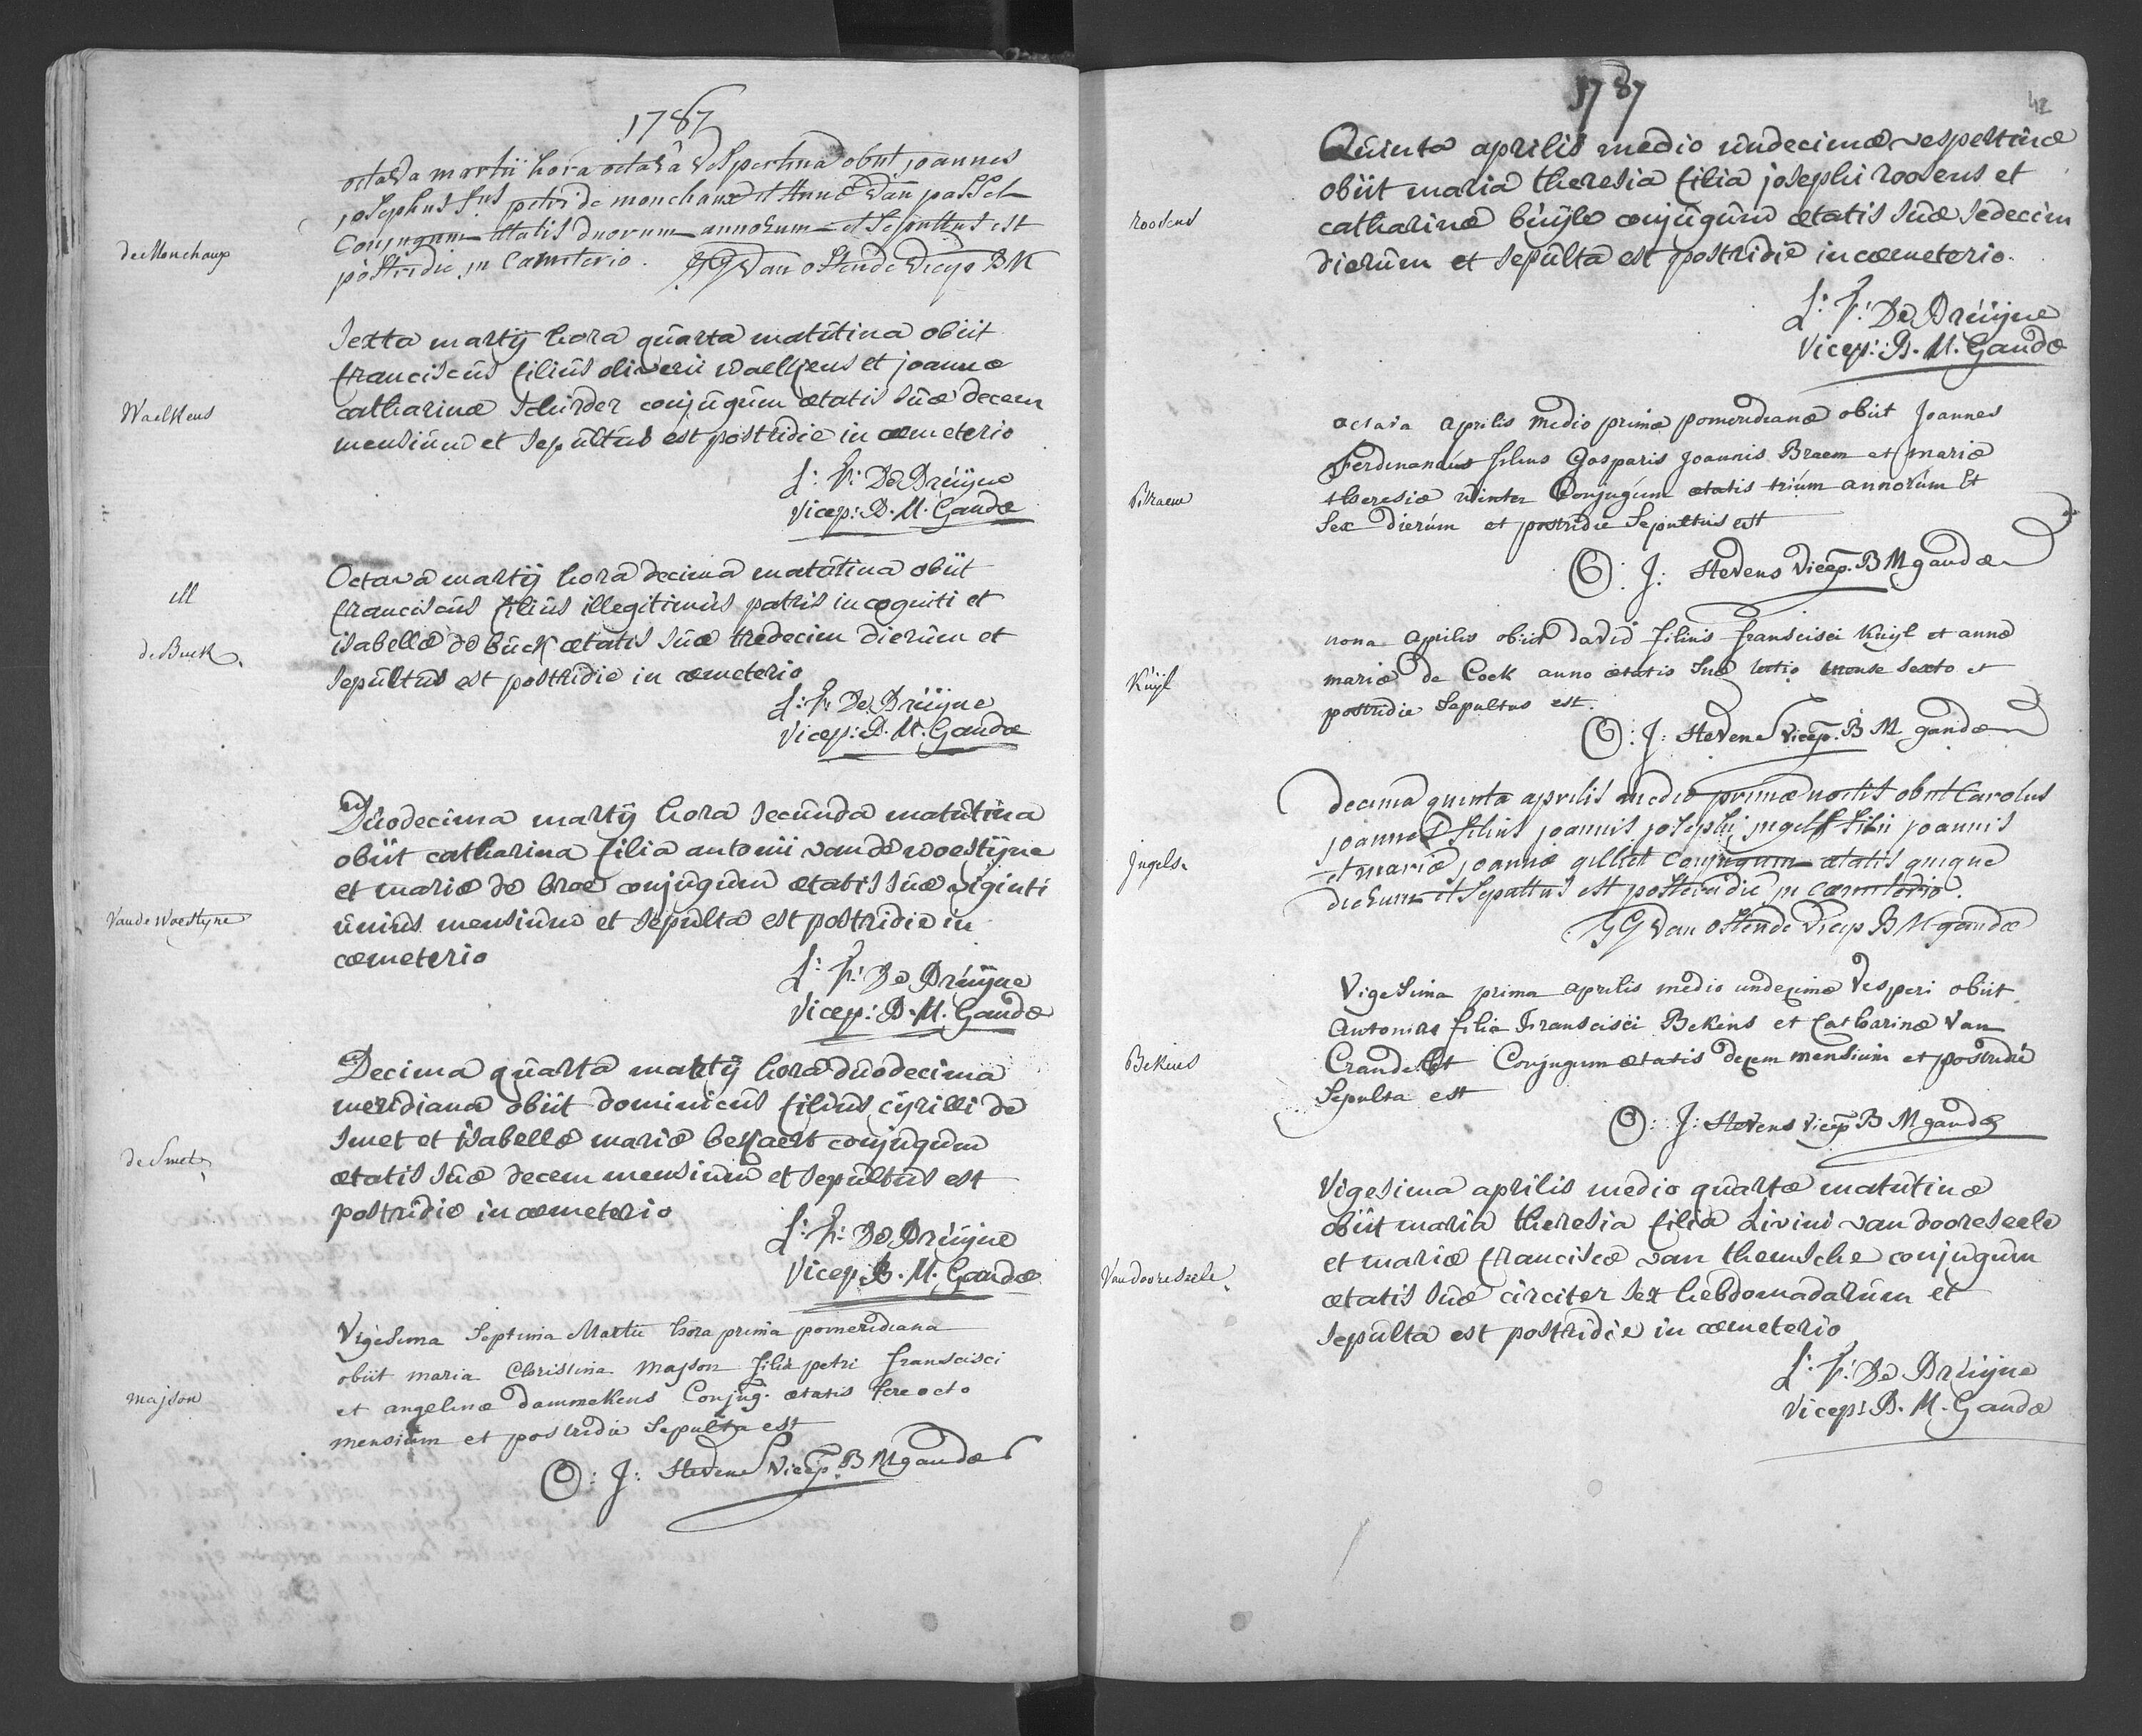 1787
octava martii hora octavâ Vespertina obiit joannes
josephus f.us petri de monchaux et Annæ Van passel
Conjugum ætatis duorum annorum et Sepultus est
postridie in Cæmiterio. JG Van ostende Vicep B M
de Monchaux
Sexta martij hora quarta matutina obiit
franciscus filius oliverii waelkens et joannæ
catharinæ Schirder conjugum ætatis suæ decem
mensium et sepultus est postridie in cœmeterio
Waelkens
L: F: De Bruijne
Vicep: B. M. Gandæ
Octava martij hora decima matutina obiit
franciscus filius illegitimus patris incogniti et
isabellæ de buck ætatis suæ tredecim dierum et
sepultus est postridie in cœmeterio
ill
de Buck.
L: F: De Bruijne
Vicep: B. M. Gandæ
Duodecima martij hora secunda matutina
obiit catharina filia antonii van de woestijne
et mariæ de brae conjugum ætatis suæ viginti
unius mensium et sepulta est postridie in
cœmeterio
Van de Woestyne
L: F: De Bruijne
Vicep: B. M. Gandæ
Decima quarta martij hora duodecima
meridiana obiit dominicus filius cyrilli de
smet et isabellæ mariæ bekaert conjugum
ætatis suæ decem mensium et sepultus est
postridie in cœmeterio
de Smet
L: F: De Bruijne
Vicep: B. M. Gandæ
Vigesima Septima Martii hora prima pomeridiana
obiit maria Christina Majson filia petri franscisci
et angelinæ dammekens Conjug. ætatis fere octo
mensium et postridie Sepulta est
majson
O: J: Stevens Vicep. B M gandæ
1787
42
Quinta aprilis medio undecimæ vespertinæ
obiit maria theresia filia josephi roosens et
catharinæ buijle conjugum ætatis suæ sedecim
dierum et sepulta est postridie in cœmeterio.
roosens
L: F: De Bruijne
Vicep: B. M. Gandæ
octava aprilis medio primæ pomeridianæ obiit Joannes
Ferdinandus filius Gasparis Joannis Braem et mariæ
theresiæ winter Conjugum ætatis trium annorum Et
Sex dierum et postridie Sepultus est
Braem
O: J: Stevens Vicep. B M gandæ
nona aprilis obiit david filius franscisci Kuijl et annæ
mariæ de Cock anno ætatis suæ tertio mense sexto et
postridie Sepultus est.
Kuijl
O: J: Stevens Vicep. B M gandæ
decima quinta aprilis medio primæ noctis obiit Carolus
joannes filius joannis josephi ingels filii joannis
et mariæ joannæ gilliet Conjugum ætatis quinque
dierum et Sepultus est postridie in Cæmiterio.
Ingels.
JG Van ostende Vicep B M gandæ
Vigesima prima aprilis medio undecimæ Vesperi obiit
Antonia filia Franscisci Bekens et Catharinæ Van
Crandelet Conjugum ætatis decem mensium et postridie
Sepulta est
Bekens
O: J: Stevens Vicep B M gandæ
Vigesima aprilis medio quartæ matutinæ
obiit maria theresia filia Livini van dooreseele
et mariæ franciscæ van themsche conjugum
ætatis suæ circiter sex hebdomadarum et
sepulta est postridie in cœmeterio
Van dooreseele.
L: F: De Bruijne
Vicep: B. M. Gandæ